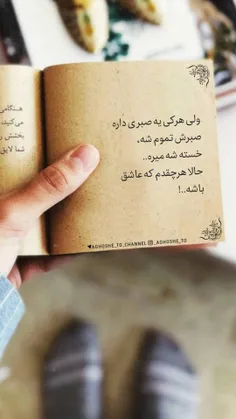 ولی هرکی یه صبری داره
صبرش تموم شه،
خسته شه میره..
حالا هرچقدم که عاشق
باشه..!
هنگامی
می‌کنید،
بخشش
شما لایق
AGHOSHE_TO_CHANNEL AGHOSHE_TO